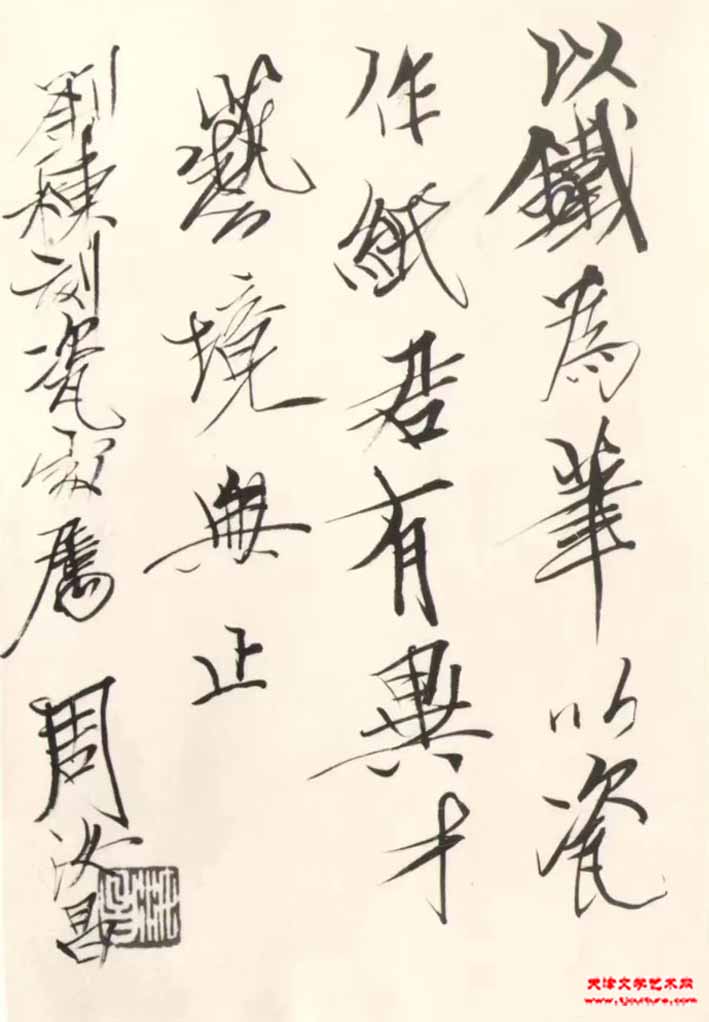 以鐵為筆以瓷
作紙君有異才
藝境無止
刘棟刻瓷家屬 周汝昌
天津文学艺术网
www.tjculture.com